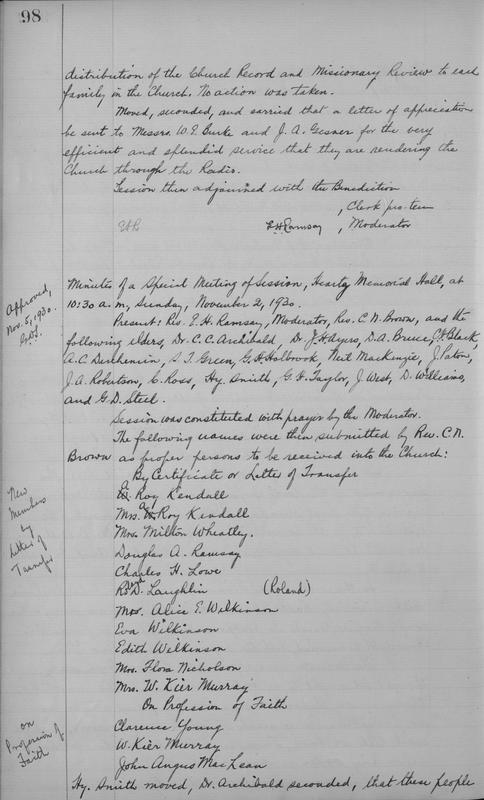 98
distribution of the Church Record and Missionary Review to each
family in the Church. No action was taken.
Moved, seconded, and carried that a letter of appreciation
be sent to Messrs W. E. Burke and J. A. Gesner for the very
efficient and splendid service that they are rendering the
Church through the Radio.
Session then adjourned with the Benediction
, Clerk pro-tem
EHR E H Ramsay , Moderator
Approved,
Nov. 5, 1930.
Minutes of a Special Meeting of Session, Hearty Memorial Hall, at
10:30 a.m., Sunday, November 2, 1930.
Present: Rev. E. H. Ramsay, Moderator, Rev. C. N. Brown, and the
following elders, Dr. C. C. Archibald, Dr. J. H. Ayers, D. A. Bruce, C. F. Black,
A. C. S. T. Green, G. H. Holbrook, Neil MacKenzie, J. Paton,
J. A. Robertson, C. Ross, Hy. Smith, G. H. Taylor, J. West, D. Williams,
and G. D. Steel.
Session was constituted with prayer by the Moderator.
The following names were then submitted by Rev. C. N.
Brown as proper persons to be received into the Church:
New
Members
by
Letter of
Transfer
By Certificate or Letter of Transfer
A. Roy Kendall
Mrs. A. Roy Kendall
Mrs. Milton Wheatley.
Douglas A. Ramsay
Charles H. Lowe
D. Laughlin (Roland)
Mrs. Alice E. Wilkinson
Eva Wilkinson
Edith Wilkinson
Mrs. Flora Nicholson
Mrs. W. Kier Murray
on
Profession of
Faith
On Profession of Faith
Clarence Young
W. Kier Murray
John Angus MacLean
Hy. Smith moved, Dr. Archibald seconded, that these people